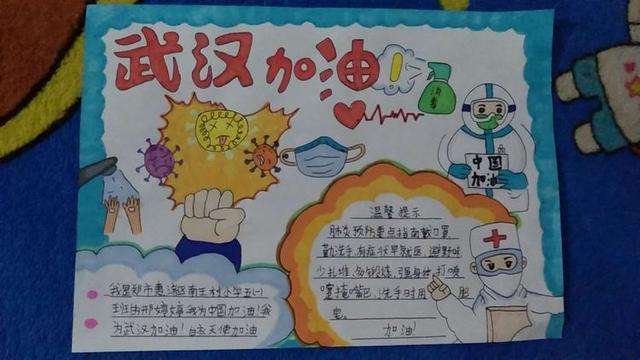 武汉加油
消毒
中国
加油
温馨提示
肺炎预防重点指南戴口罩
勤洗手,有症状早就医,避野味
少扎堆,多锻炼,强身体,打喷
嚏掩嘴巴,洗手时用 肥
皂。
加油!
我是郑市惠济区南王村小学五(一)
班的邢婷婷我为中国加油!我
为武汉加油!白衣天使加油